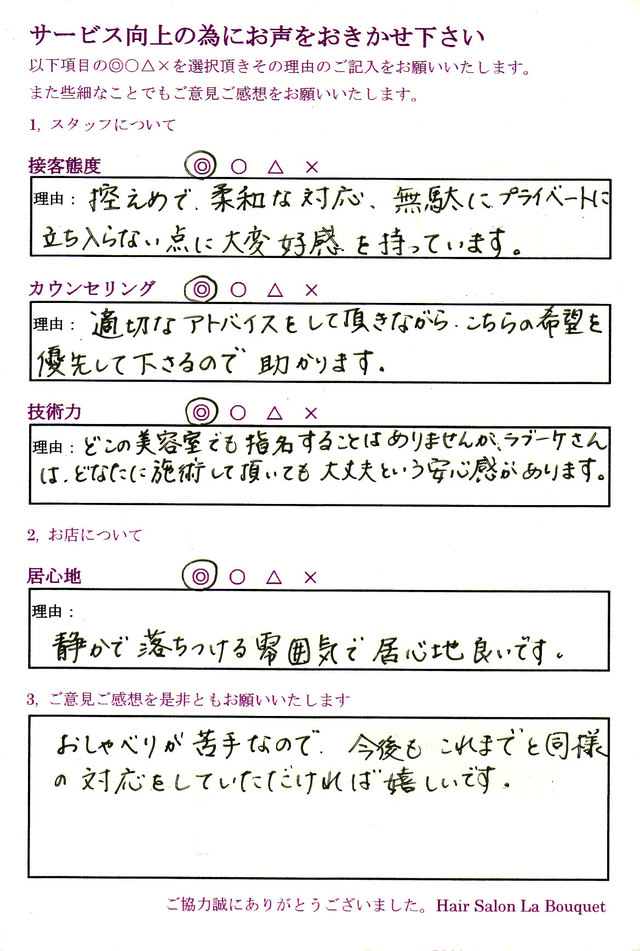 サービス向上の為にお声をおきかせ下さい
以下項目の◎○△×を選択頂きその理由のご記入をお願いいたします。
また些細なことでもご意見ご感想をお願いいたします。
1, スタッフについて
接客態度 ◎ ○ △ ×
理由： 控えめで、柔和な対応、無駄にプライベートに
立ち入らない点に大変好感を持っています。
カウンセリング ◎ ○ △ ×
理由： 適切なアドバイスをして頂きながら、こちらの希望を
優先して下さるので助かります。
技術力 ◎ ○ △ ×
理由： どこの美容室でも指名することはありませんが、ラブーケさん
は、どなたに施術して頂いても大丈夫という安心感があります。
2, お店について
居心地 ◎ ○ △ ×
理由：
静かで落ちつける雰囲気で居心地良いです。
3, ご意見ご感想を是非ともお願いいたします
おしゃべりが苦手なので、今後もこれまでと同様
の対応をしていただければ嬉しいです。
ご協力誠にありがとうございました。Hair Salon La Bouquet